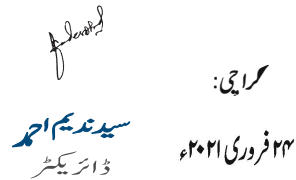 کراچی:
۲۴ فروری ۲۰۲۱ء
سید ندیم احمد
ڈائریکٹر